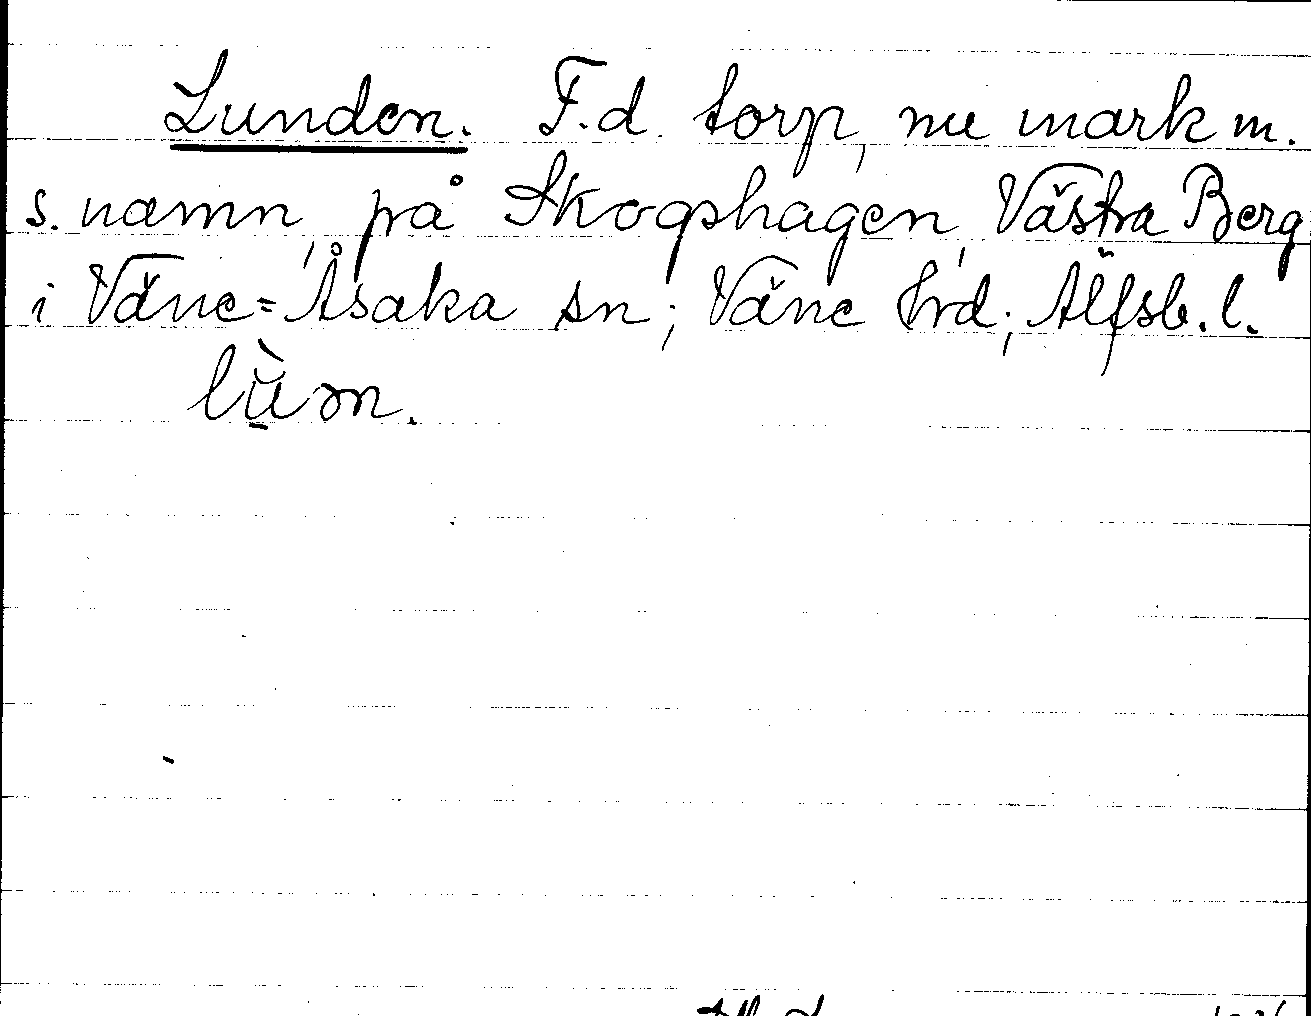 Lunden. F.d. torp, nu mark m.
s. namn, på Skogshagen, Västra Berg
i Väne=Åsaka sn; Väne hrd; Älfsb. l.